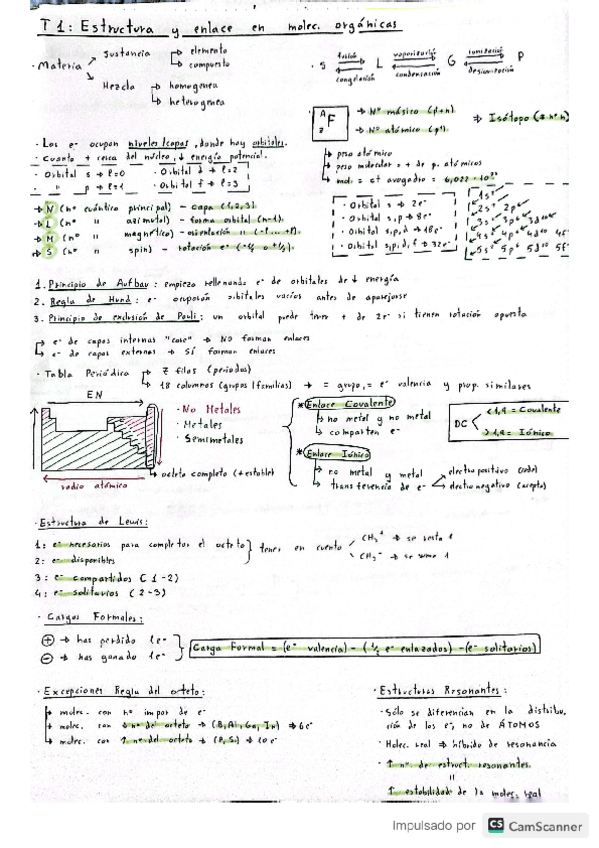 T1: Estructura y enlace en molec. orgánicas
· Materia
Sustancia
elemento
compuesto
Mezcla
homogenea
heterogenea
S
fusión
congelación
L
vaporización
condensación
G
ionización
P
A
Z
F
Nº másico (p+n)
Nº atómico (p+)
⇒ Isótopo (≠ nº n)
peso atómico
peso molecular = + de p. atómicos
mol = ct avogadro = 6,022 · 10²³
· Los e⁻ ocupan niveles/capas, donde hay orbitales.
· Cuanto + cerca del núcleo, ↓ energía potencial.
· Orbital s → l=0 · Orbital d → l=2
· " p → l=1 · Orbital f → l=3
→ N (nº cuántico principal) – capa (1,2,3).
→ L (nº " azimutal) – forma orbital (n-1).
→ M (nº " magnético) – orientación " (-l ... +l).
→ S (nº " spin) – rotación e⁻ (-½ o +½).
· Orbital s → 2e⁻
· Orbital s, p → 8e⁻
· Orbital s, p, d → 18e⁻
· Orbital s, p, d, f → 32e⁻
1s²
2s² 2p⁶
3s² 3p⁶ 3d¹⁰
4s² 4p⁶ 4d¹⁰ 4f
5s² 5p⁶ 5d¹⁰ 5f
1. Principio de Aufbau: empiezo rellenando e⁻ de orbitales de ↓ energía
2. Regla de Hund: e⁻ ocuparán orbitales vacíos antes de aparejarse
3. Principio de exclusión de Pauli: un orbital puede tener + de 2e⁻ si tienen rotación opuesta
e⁻ de capas internas "core" → NO forman enlaces
e⁻ de capas externas → SÍ forman enlaces
· Tabla Periódica
7 filas (periodos)
18 columnas (grupos/familias) → = grupo, = e⁻ valencia y prop. similares
EN
radio atómico
· No Metales
· Metales
· Semimetales
octeto completo (+ estable)
* Enlace Covalente
no metal y no metal
comparten e⁻
* Enlace Iónico
no metal y metal
transferencia de e⁻
electropositivo (cede)
electronegativo (acepta)
DC
< 1,9 = Covalente
> 1,9 = Iónico
· Estructura de Lewis:
1: e⁻ necesarios para completar el octeto
2: e⁻ disponibles
tener en cuenta
CH₃⁺ → se resta 1
CH₃⁻ → se suma 1
3: e⁻ compartidos (1-2)
4: e⁻ solitarios (2-3)
· Cargas Formales:
⊕ → has perdido 1e⁻
⊖ → has ganado 1e⁻
Carga Formal = (e⁻ valencia) – (½ e⁻ enlazados) – (e⁻ solitarios)
· Excepciones Regla del octeto:
molec. con nº impar de e⁻
molec. con ↓ nº del octeto → (B, Al, Ga, In) → 6e⁻
molec. con ↑ nº del octeto → (P, S) → 10e⁻
· Estructuras Resonantes:
· Sólo se diferencian en la distribu-
ción de los e⁻, no de ÁTOMOS
· Molec. real → híbrido de resonancia
· ↑ nº de estruct. resonantes
=
↑ estabilidad de la molec. real
Impulsado por CS CamScanner